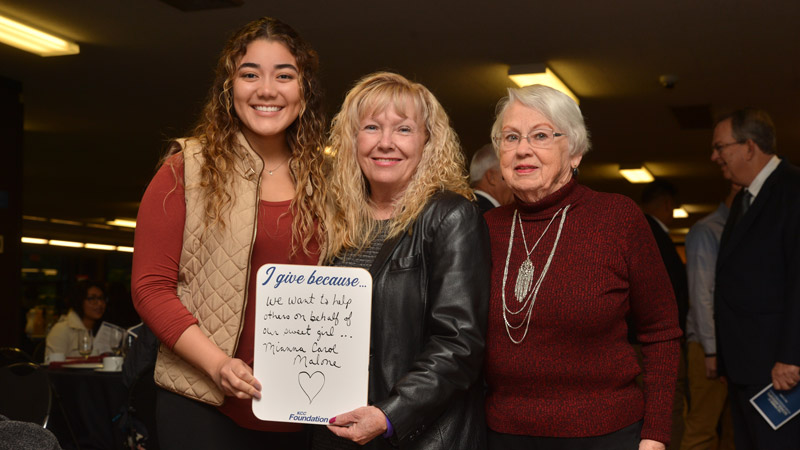 I give because...
we want to help
others on behalf of
our sweet girl...
Mianna Carol
Malone
KCC
Foundation